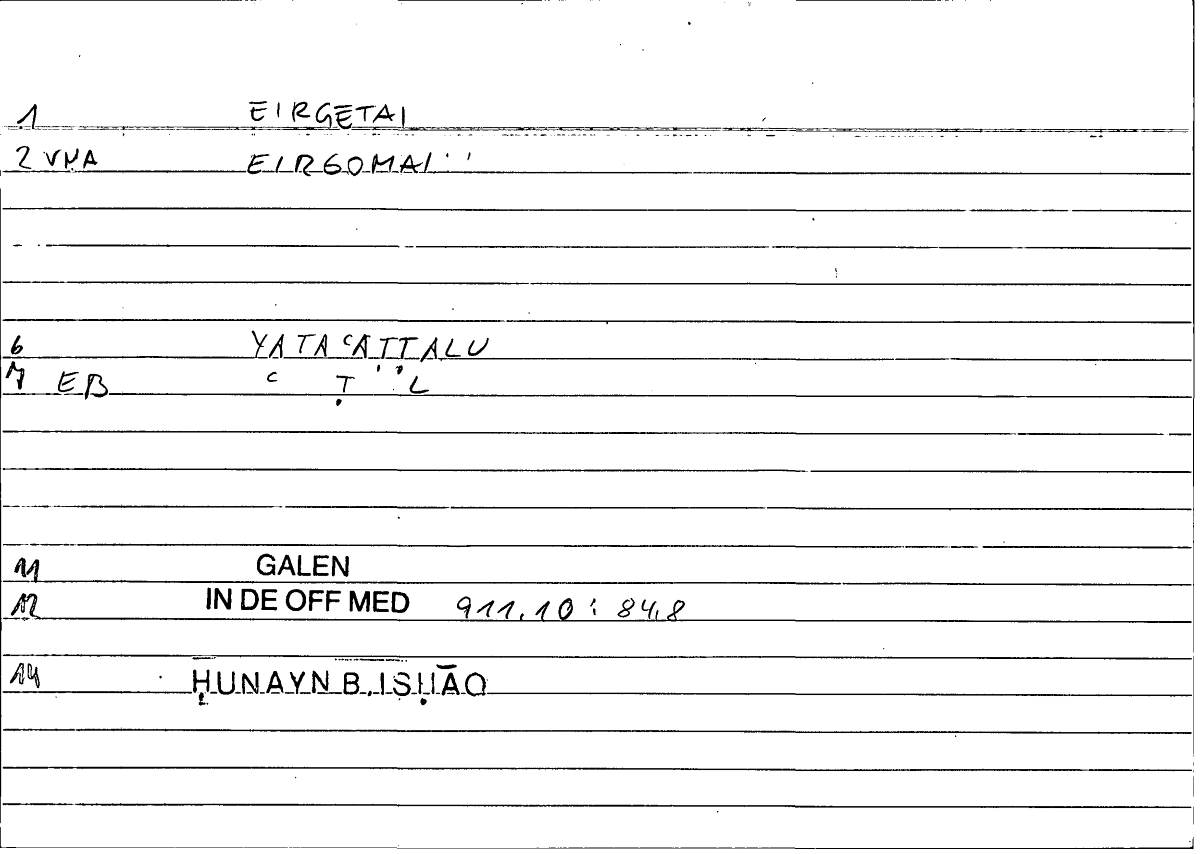 1 EIRGETAI
2 VNA EIRGOMAI
6 YATAʿAṬṬALU
7 EB ʿ Ṭ L
11 GALEN
12 IN DE OFF MED 911,10 : 84,8
14 ḤUNAYN B. ISḤĀQ